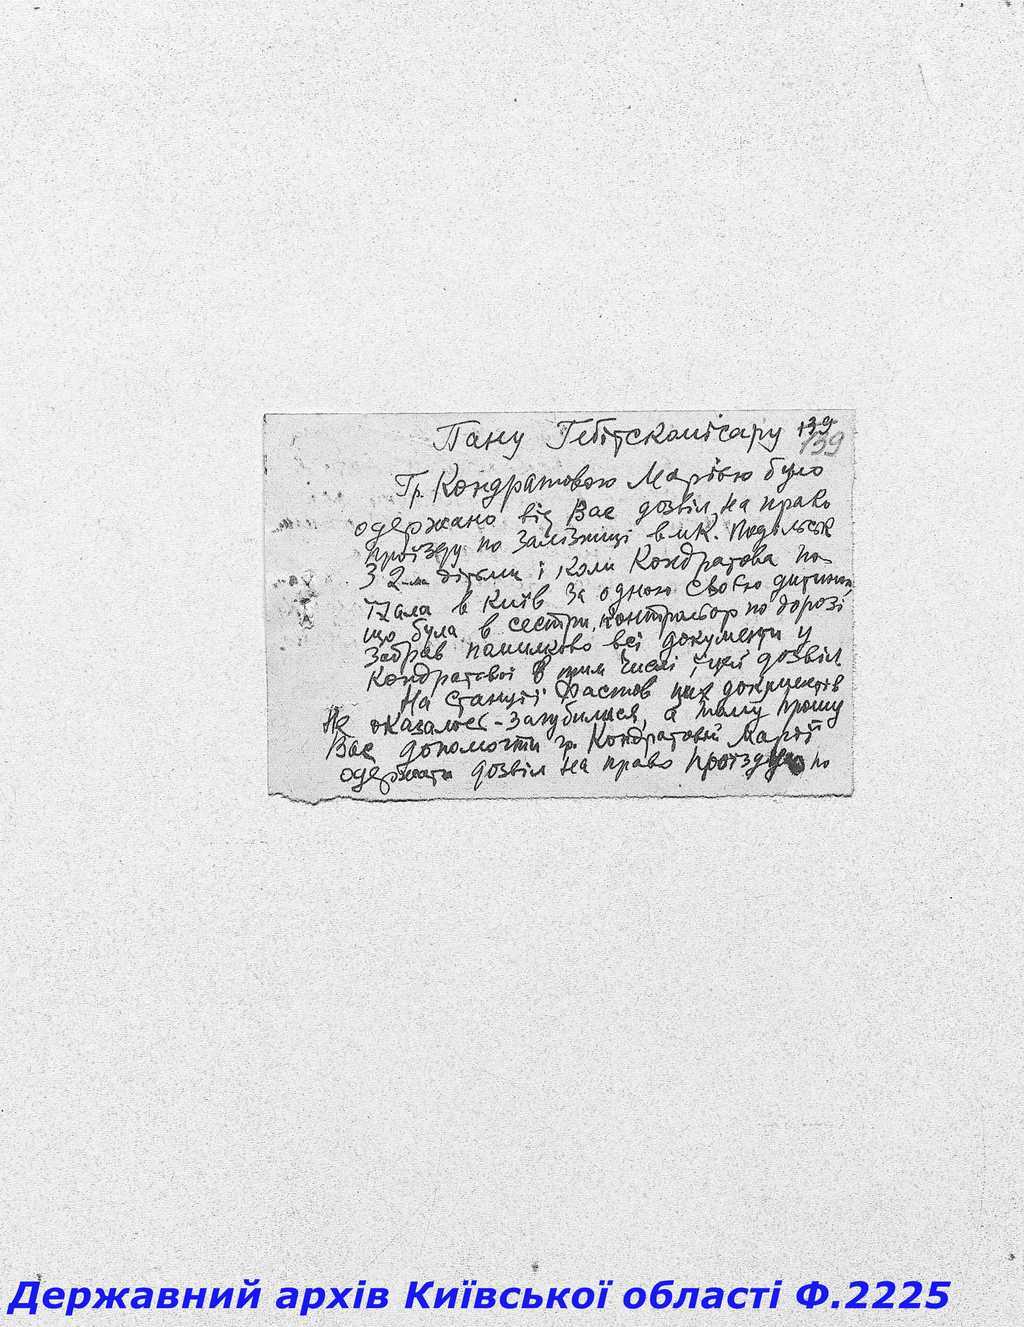 Пану Гебітскомісару 139
139
Гр. Кондратовою Марією було
одержано від Вас дозвіл, на право
проїзду по залізниці в м.К. Подільськ
З 2-ма дітьми і, коли Кондратова по-
їхала в Київ за одною своєю дитиною,
що була в сестри, контрольор по дорозі
забрав помилково всі документи у
Кондратової в тім числі і цей дозвіл.
На станції Фастов цих документів
не оказалось - загубилися, а тому прошу
Вас допомогти гр. Кондратовій Марії
одержати дозвіл на право проїзду по
Державний архів Київської області Ф.2225